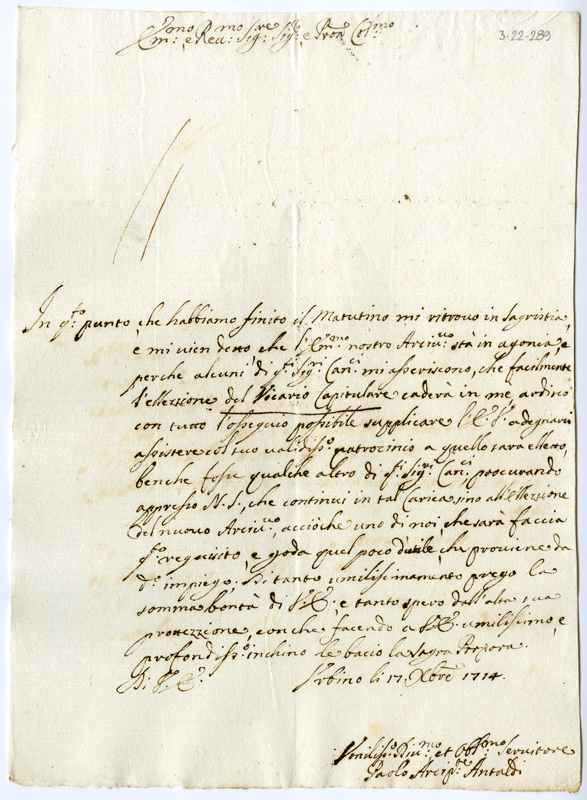 3-22-289
Emo e Revmo Sigre Sigre e Pron Colmo
In qto punto, che habbiamo finito il Matutino mi ritrovo in Sagristia,
e mi vien detto che l'Emmo nostro Arcivvo stà in agonia, e
perche alcuni di qti Sigri Canci mi asseriscono, che facilmente
l'ellezzione del Vicario Capitulare caderà in me, ardisco
con tutto l'ossequio possibile supplicare l'E.V. a degnarsi
assistere col suo validisso patrocinio a quello sarà eletto,
benche fosse qualche altro di qti Sigri Canci, procurando
appresso N.S., che continui in tal Carica sino all'ellezzione
del nuovo Arcivvo, acciòche uno di noi, che sarà faccia
qto requisito, e goda quel poco d'utile, che proviene da
do impiego. Di tanto umilissimamente prego la
somma bontà di V.E., e tanto spero dall'alta sua
protezzione, con che facendo a V.E. umilissimo, e
profondisso inchino le bacio la Sagra Porpora.
Di V.E.
Urbino li 17 Xbre 1714.
Umilisso Divmo et Obbmo Servitore
Paolo Arcipte Antaldi